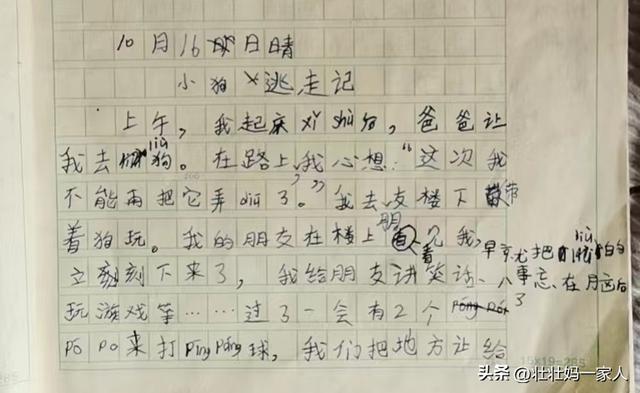 10月16日晴
小狗逃走记
上午，我起床xǐ shù后，爸爸让
我去liù狗。在路上，我心想：“这次我
不能再把它弄diū了。”我去楼下带
着狗玩。我的朋友在楼上看见我，
立刻下来了，我给朋友讲笑话、
玩游戏等……过了一会有2个
Pó Po来打Pīng Pāng球，我们把地方让给
早就把liù白白
事忘在
了
15×19=285
头条 @壮壮妈一家人